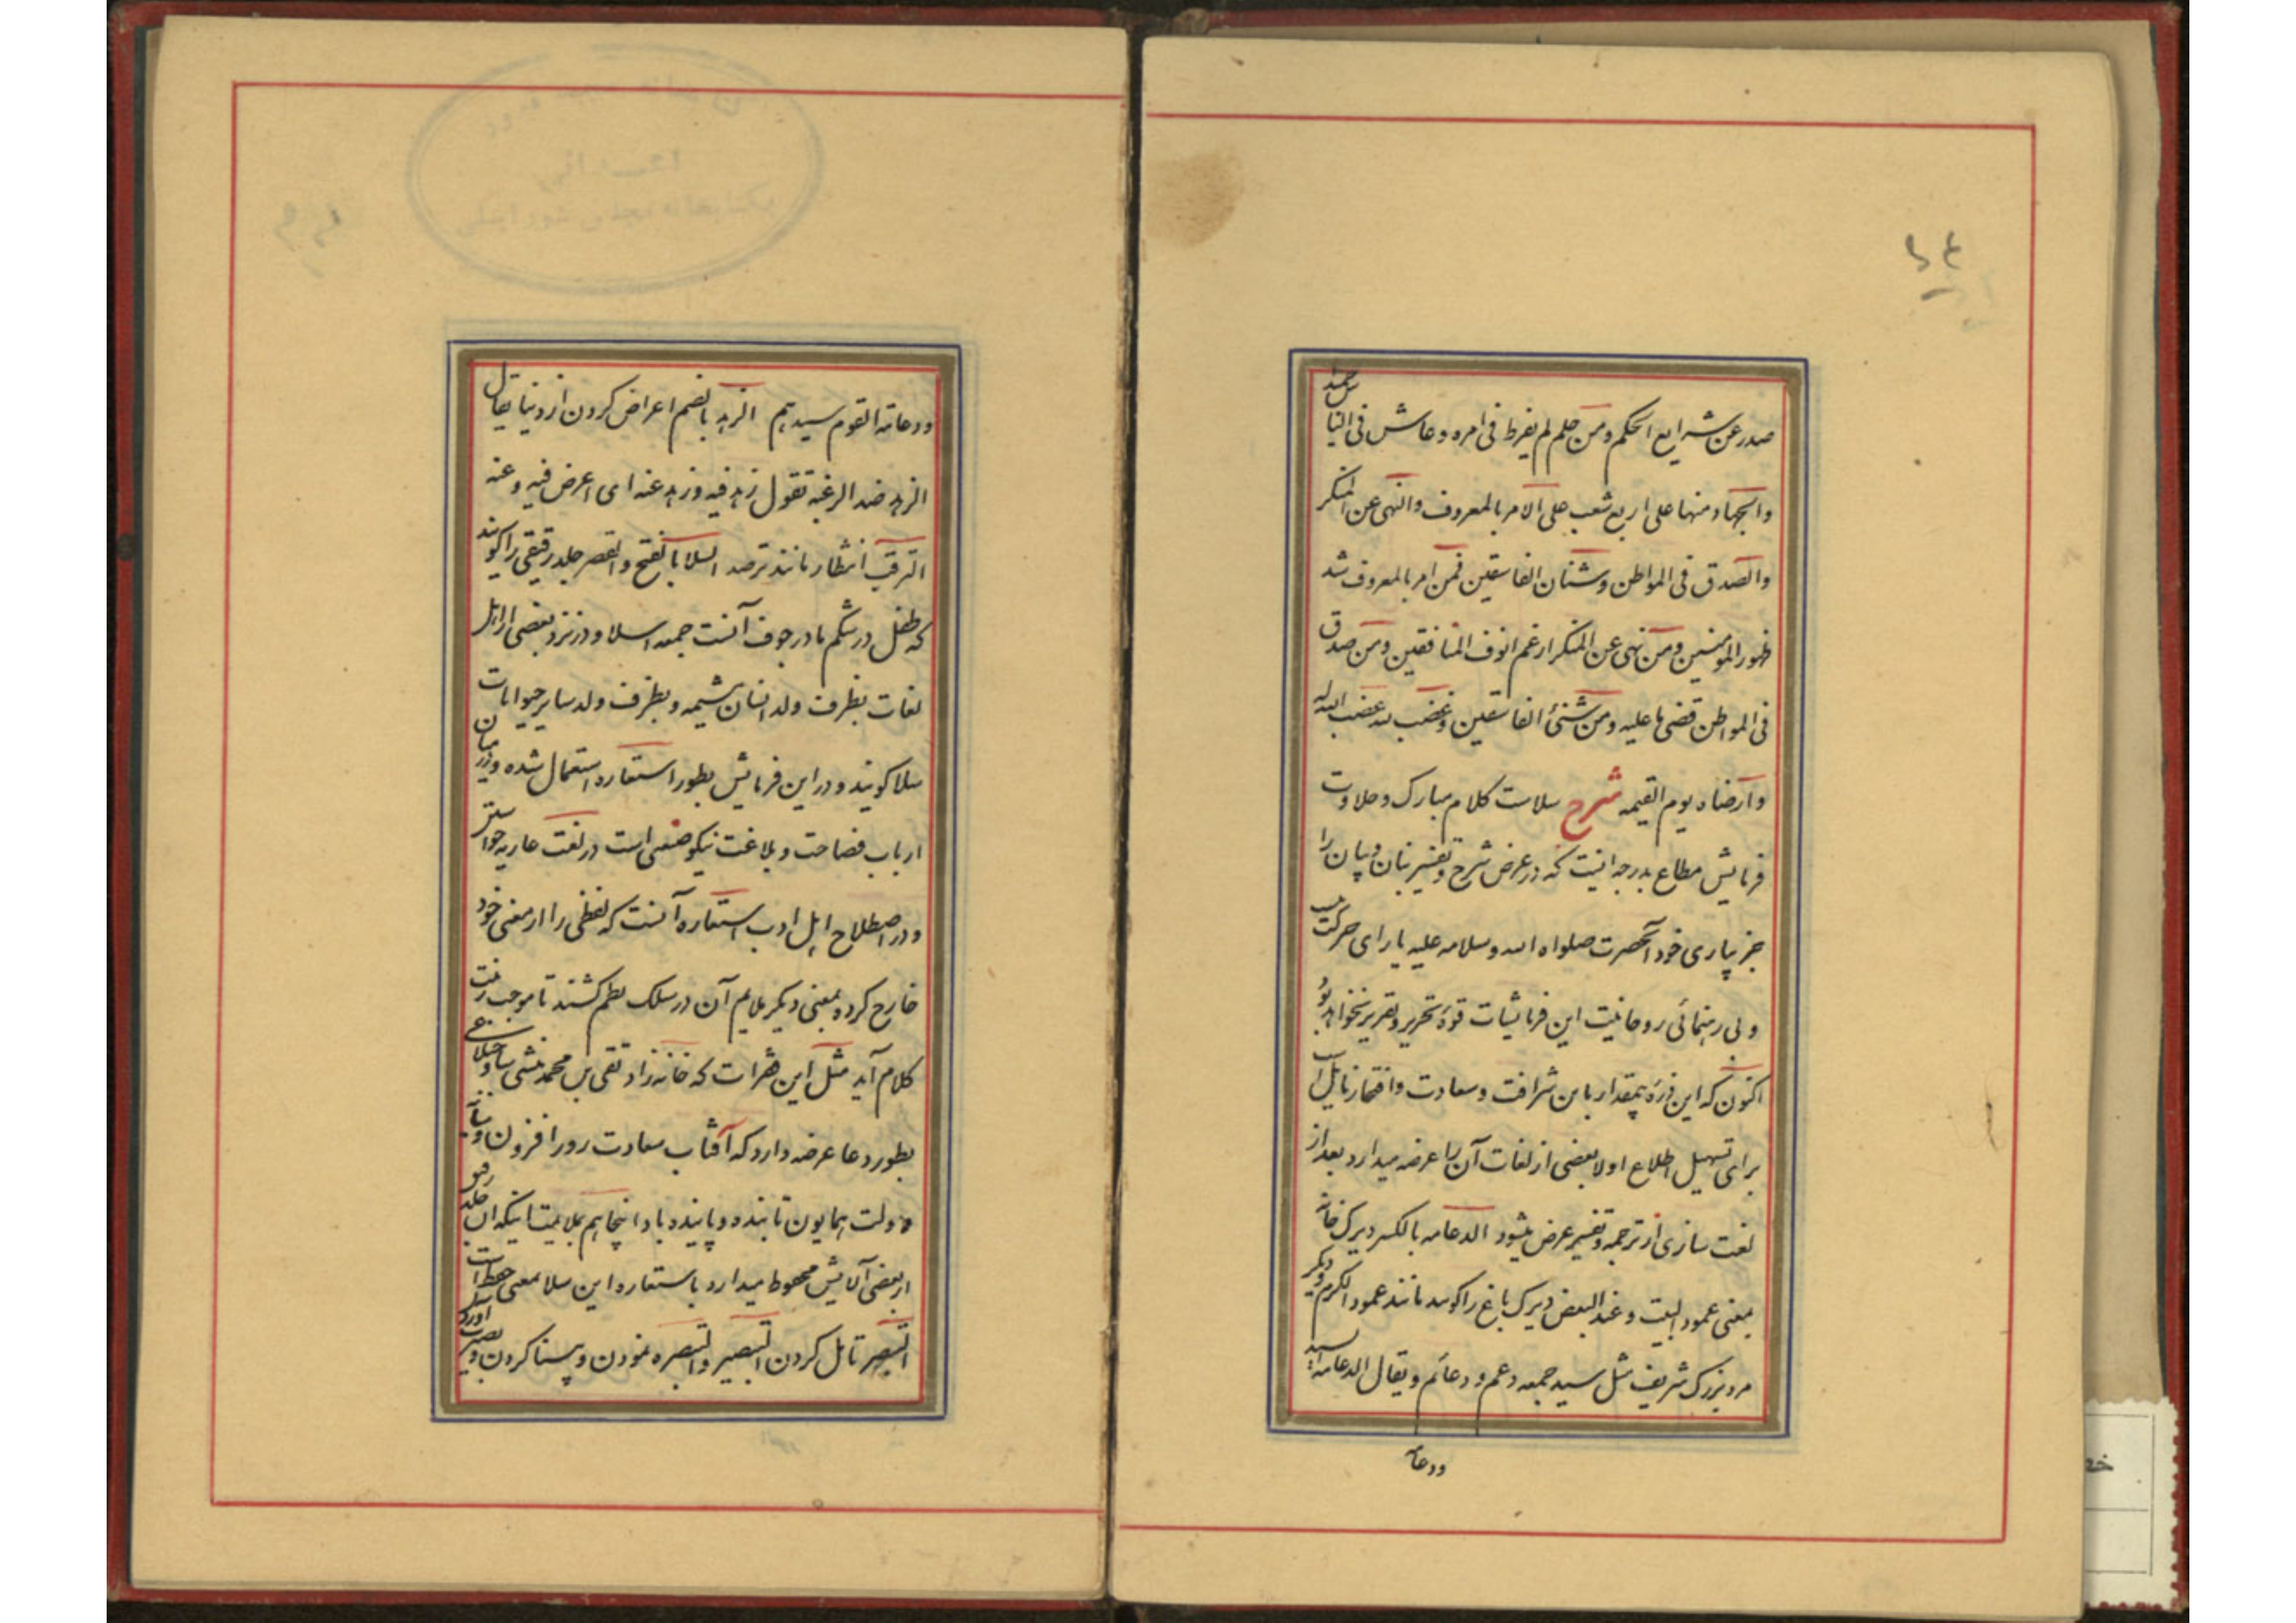 صدر عن شرایع الحکم و من حلم لم یفرط فی امره و عاش فی النا
س حمیدا
والجهاد منها علی اربع شعب علی الامر بالمعروف والنهی عن المنکر
والصدق فی المواطن و شنان الفاسقین فمن امر بالمعروف شد
ظهور المؤمنین و من نهی عن المنکر ارغم انوف المنافقین و من صدق
فی المواطن قضی ما علیه و من شنئ الفاسقین و غضب لله غضب الله له
و ارضاه یوم القیمه شرح سلاست کلام مبارک و حلاوت
فرمایش مطاع بدرجه ایست که در عرض شرح و تفسیر بنان و بیان را
جز بیاری خود آنحضرت صلواه الله وسلامه علیه یارای حرکت
ولی رهنمائی روحانیت این فرمایشات قوهٔ تحریر و تقریر نخواهد بود
اکنون که این ذرهٔ بیمقدار باین شرافت و سعادت و افتخار نایل است
برای تسهیل اطلاع اولا بعضی از لغات آن را عرضه میدارد بعد از
لغت سازی از ترجمه و تفسیر عرض میشود الدعامه بالکسر دیرک خانه
بمعنی عمود البیت و عند البعض دیرک باغ را گویند مانند عمود الکرم و دیگر
مرد بزرک شریف مثل سید جمعه دعم و دعائم و یقال الدعامه السید
ودعامه
ودعامه القوم سیدهم الزهد بالضم اعراض کردن از دنیا یقال
الزهد ضد الرغبه تقول زهد فیه و زهد عنه ای اعرض فیه و عنه
الترقب انتظار مانند ترصد السلا بالفتح والقصر جلد رقیقی را کویند
که طفل در شکم مادر جوف آنست جمعه اسلا و در نزد بعضی از اهل
لغات بظرف ولد انسان مشیمه و بظرف ولد سایر حیوانات
سلا کویند و در این فرمایش بطور استعاره استعمال شده و در میان
ارباب فصاحت و بلاغت نیکو صنعی است در لغت عاریه خواستن
و در اصطلاح اهل ادب استعاره آنست که لفظی را از معنی خود
خارج کرده بمعنی دیکر ملایم آن در سلک نظم کشند تا موجب زینت
کلام آید مثل این فقرات که خانه زاد تقی بن محمد منشی ساوجبلاغی
بطور دعا عرضه دارد که آفتاب سعادت روز افزون و سایه
دولت همایون تابنده و پاینده باد اینجا هم بملایمت اینکه آن جلد
از بعضی آلایش محفوظ میدارد باستعاره این سلا بمعنی حفظ است
التبصر تامل کردن التبصیر والتبصره نمودن و بینا کردن و